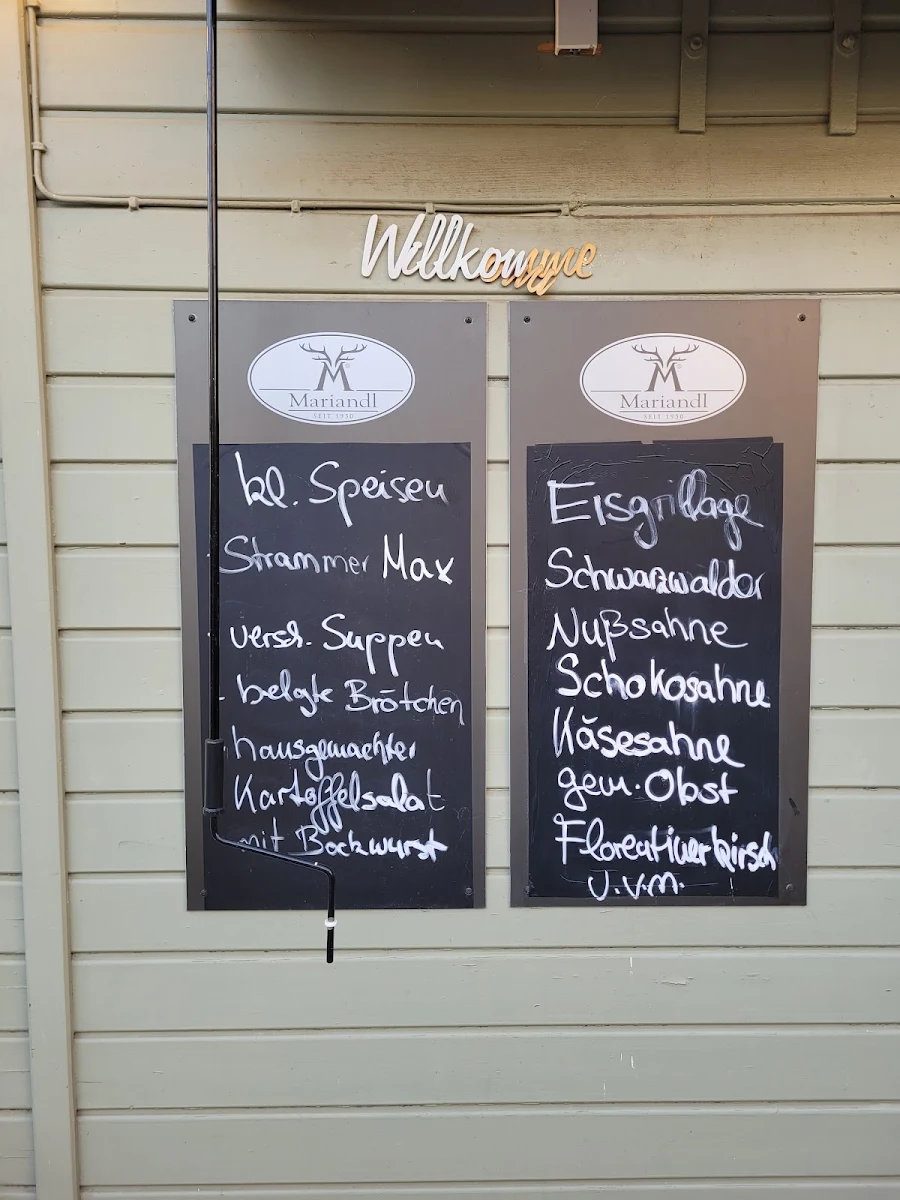 Willkomme
M
Mariandl
SEIT 1950
kl. Speisen
Strammer Max
versch. Suppen
- belgte Brötchen
hausgemachter
Kartoffelsalat
mit Bockwurst
M
Mariandl
SEIT 1950
Eisgrillage
Schwarzwälder
Nußsahne
Schokosahne
Käsesahne
gem. Obst
Florentiner kirsch
u.v.m.